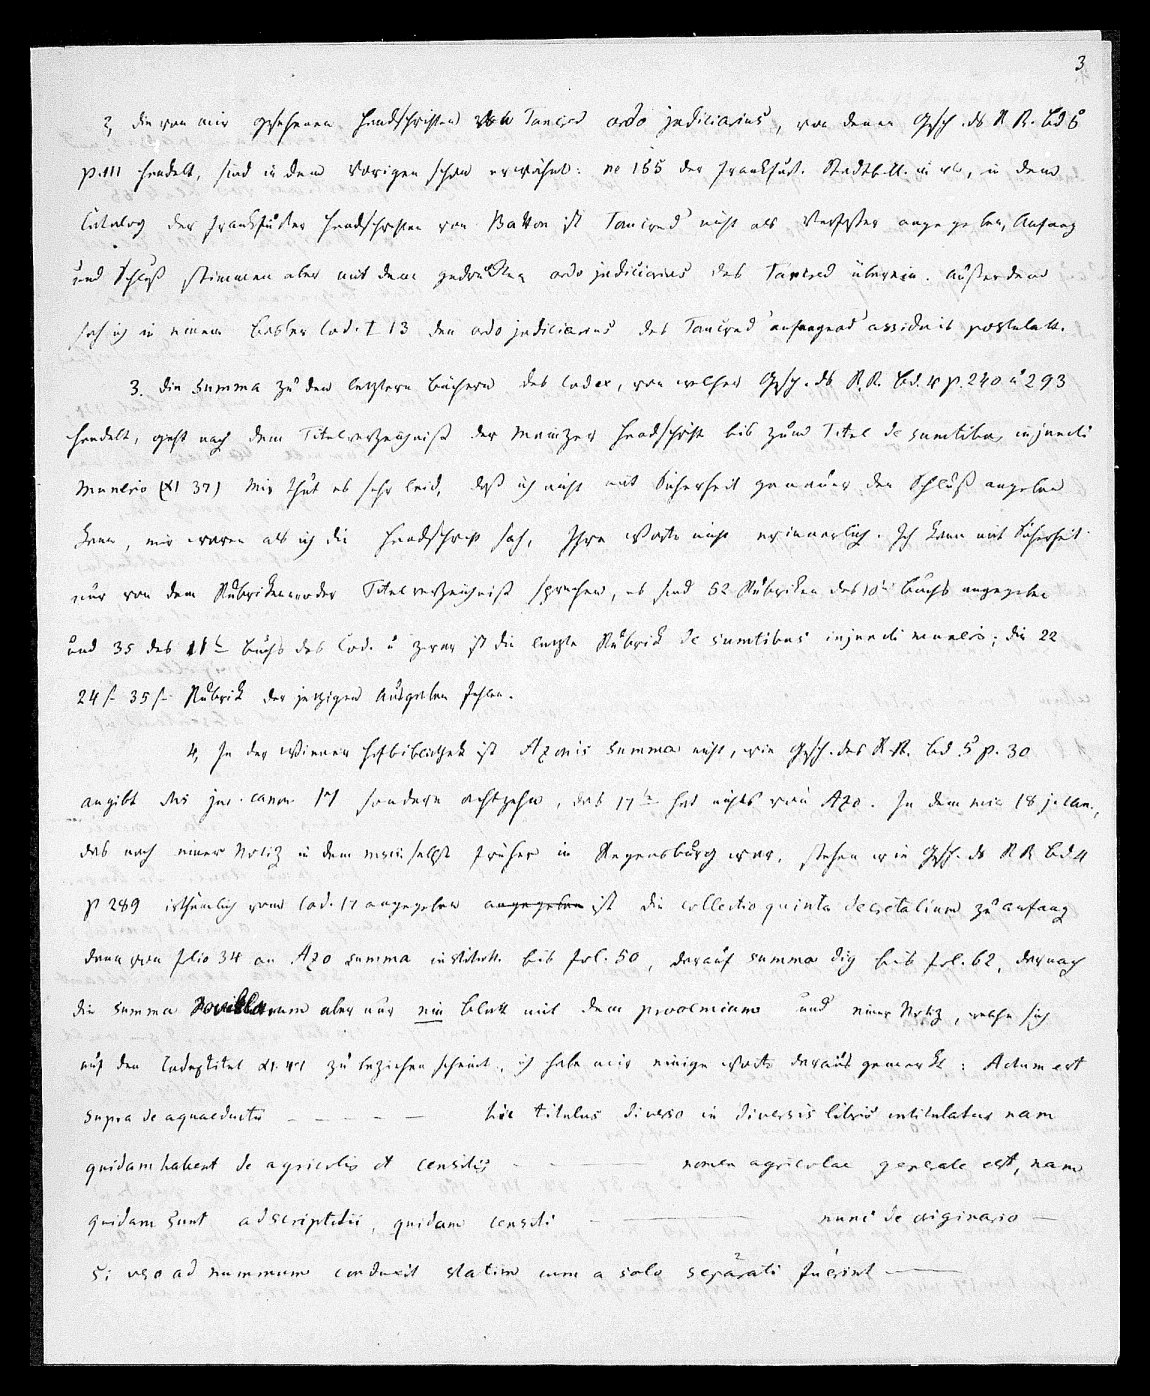 3
2, die von mir gesehenen Handschriften von Tancred ordo judiciarius, von denen Gesch. ds R R. Bd 5
p. 111 handelt, sind in dem Vorigen schon erwähnt: no 155 der Frankfurt. Stadtbibl. in in dem
Catalog der Frankfurter Handschriften von Batton ist Tancred nicht als Verfasser angegeben, Anfang
und Schluß stimmen aber mit dem gedruckten ordo judiciarius des Tancred überein. Außerdem
sah ich in einem Basler Cod. I 13 den ordo judiciarius des Tancred anfangend assiduis postulatt.
3. die Summa zu den letztern Büchern des Codex, von welcher Gesch. ds R. R. Bd. 4 p. 240 u 293
handelt, geht nach dem Titelverzeichniß der Mainzer Handschrift bis zum Titel de sumtibus injuncti
muneris (XI 37) Mir thut es sehr leid, daß ich nicht mit Sicherheit genauer den Schluß angeben
kann, mir waren als ich die Handschrift sah, Ihre Worte nicht erinnerlich. Ich kann mit Sicherheit
nur von dem Rubriken oder Titelverzeichniß sprechen, es sind 52 Rubriken des 10t Buchs angegeben
und 35 des 11t Buchs des Cod. u zwar ist die letzte Rubrik de sumtibus injuncti muneris; die 22
24st 35st Rubrik der jetzigen Ausgaben fehlen.
4, In der Wiener Hofbibliothek ist Azonis Summa nicht, wie Gesch. des R. R. Bd 5 p. 30
angibt Ms jur. canon 17 sondern achtzehn, das 17te hat nichts von Azo. In dem msc 18 j. can.,
das nach einer Notiz in dem mscr. selbst früher in Regensburg war, stehen wie Gesch. ds R R Bd 4
p 289 irthümlich vom Cod. 17 angegeben angegeben ist die collectio quinta decretalium zu anfang
dann von folio 34 an Azo summa institutt. bis fol. 50, darauf summa dig bis fol. 62, darnach
die Summa Novellarum aber nur ein Blatt mit dem prooemium und einer Notiz, welche sich
auf den Codextitel XI. 47 zu beziehen scheint, ich habe mir einige Worte daraus gemerkt: Actum est
supra de aquaeductu — — — — — hic titulus diverso in diversis libris intitulatur nam
quidam habent de agricolis et censitis — — — nomen agricolae generale est, nam
quidam sunt adscriptitii, quidam censiti — — — nunc de originario —
si vero ad nummum conduxit statim cum a solo separati fuerint —